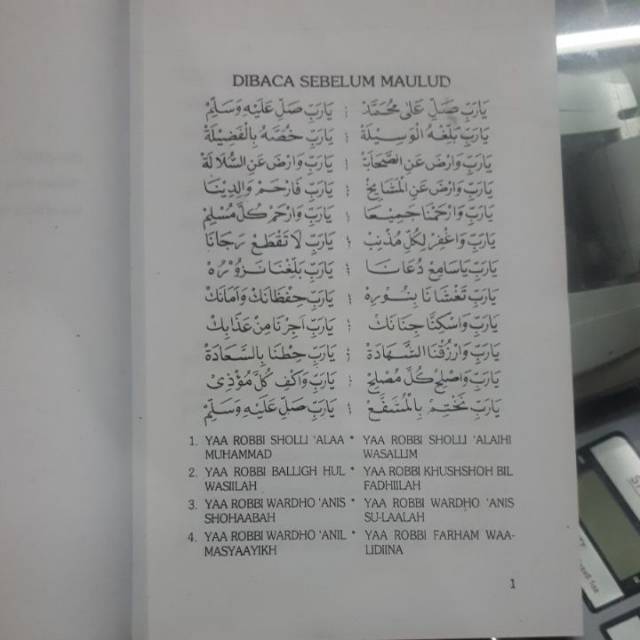 DIBACA SEBELUM MAULUD
يَارَبِّ صَلِّ عَلَى مُحَمَّدْ ؛ يَارَبِّ صَلِّ عَلَيْهِ وَسَلِّمْ
يَارَبِّ بَلِّغْهُ الْوَسِيْلَةْ ؛ يَارَبِّ خُصَّهُ بِالْفَضِيْلَةْ
يَارَبِّ وَارْضَ عَنِ الصَّحَابَةْ ؛ يَارَبِّ وَارْضَ عَنِ السُّلَالَةْ
يَارَبِّ وَارْضَ عَنِ الْمَشَايِخْ ؛ يَارَبِّ فَارْحَمْ وَالِدِيْنَا
يَارَبِّ وَارْحَمْنَا جَمِيْعًا ؛ يَارَبِّ وَارْحَمْ كُلَّ مُسْلِمْ
يَارَبِّ وَاغْفِرْ لِكُلِّ مُذْنِبْ ؛ يَارَبِّ لَا تَقْطَعْ رَجَانَا
يَارَبِّ يَاسَامِعْ دُعَانَا ؛ يَارَبِّ بَلِّغْنَا نَزُوْرُهْ
يَارَبِّ تَغْشَانَا بِنُوْرِهْ ؛ يَارَبِّ حِفْظَانَكْ وَاَمَانَكْ
يَارَبِّ وَاسْكِنَّا جِنَانَكْ ؛ يَارَبِّ اَجِرْنَا مِنْ عَذَابِكْ
يَارَبِّ وَارْزُقْنَا الشَّهَادَةْ ؛ يَارَبِّ حِطْنَا بِالسَّعَادَةْ
يَارَبِّ وَاصْلِحْ كُلَّ مُصْلِحْ ؛ يَارَبِّ وَاكْفِ كُلَّ مُؤْذِيْ
يَارَبِّ نَخْتِمْ بِالْمُشَفَّعْ ؛ يَارَبِّ صَلِّ عَلَيْهِ وَسَلِّمْ
1. YAA ROBBI SHOLLI 'ALAA * YAA ROBBI SHOLLI 'ALAIHI
MUHAMMAD WASALLIM
2. YAA ROBBI BALLIGH HUL * YAA ROBBI KHUSHSHOH BIL
WASIILAH FADHIILAH
3. YAA ROBBI WARDHO 'ANIS * YAA ROBBI WARDHO 'ANIS
SHOHAABAH SU-LAALAH
4. YAA ROBBI WARDHO 'ANIL * YAA ROBBI FARHAM WAA-
MASYAAYIKH LIDIINA
1